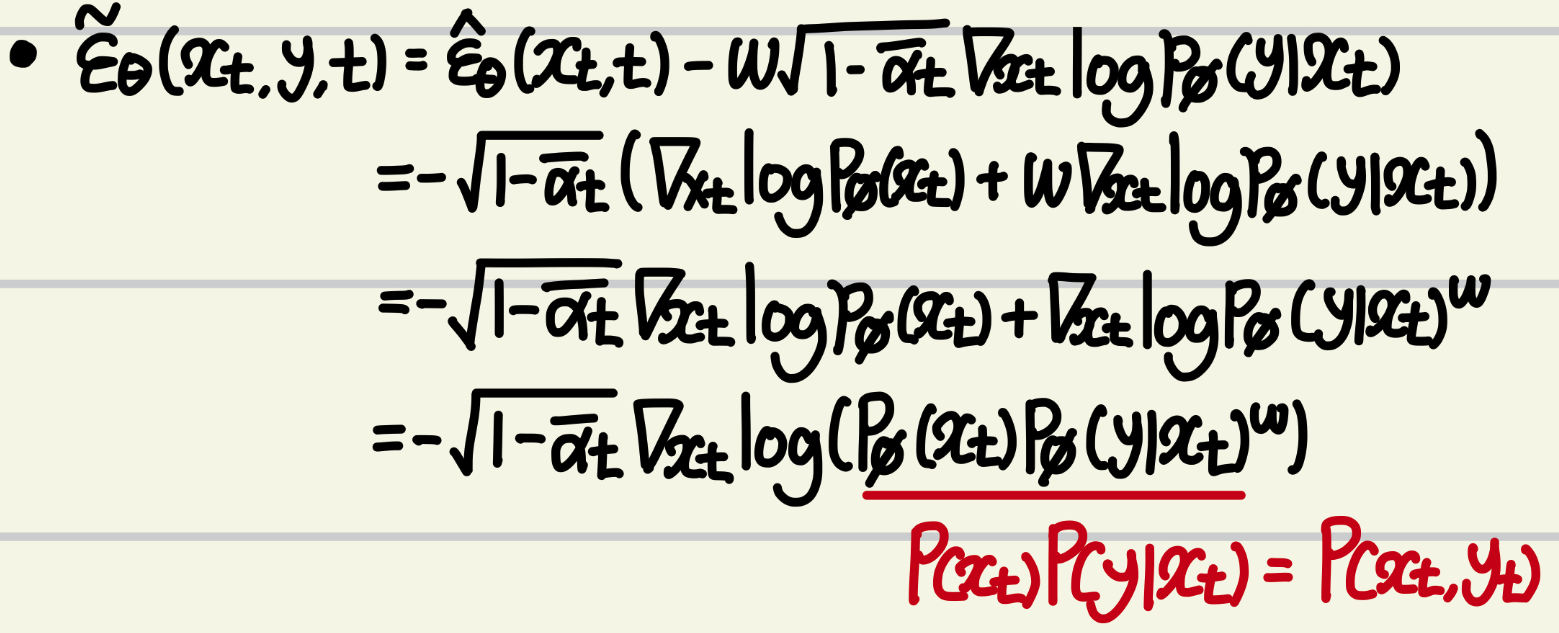 • ε̃θ(xt, y, t) = ε̂θ(xt, t) - w√(1-ᾱt) ∇xt log Pø(y|xt)
= -√(1-ᾱt) (∇xt log Pø(xt) + w∇xt log Pø(y|xt))
= -√(1-ᾱt) ∇xt log Pø(xt) + ∇xt log Pø(y|xt)^w
= -√(1-ᾱt) ∇xt log(Pø(xt) Pø(y|xt)^w)
P(xt)P(y|xt) = P(xt, yt)